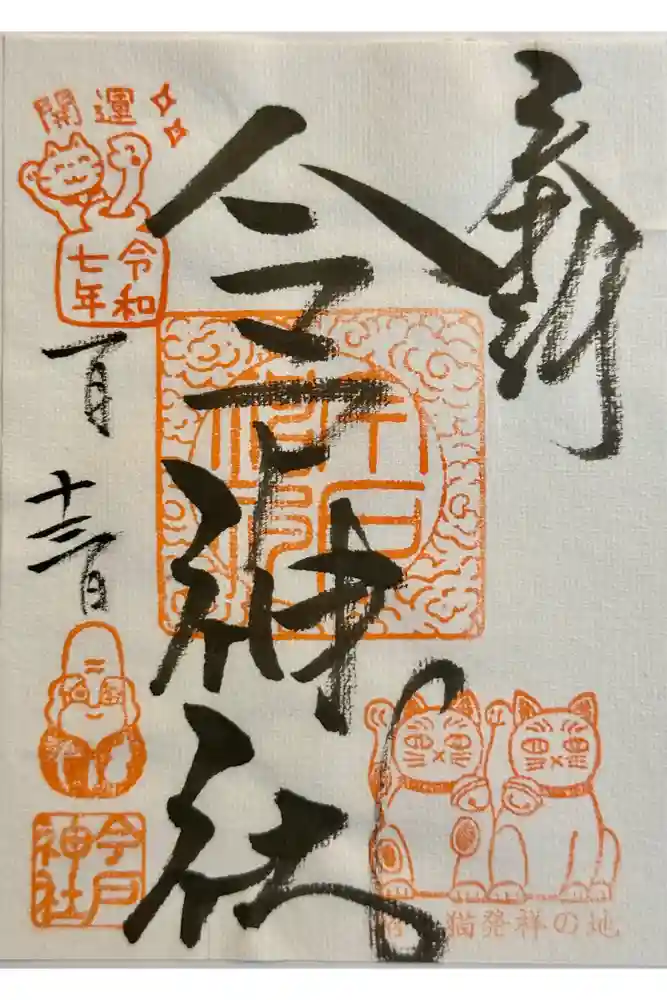 奉拝
今戸神社
開運
令和
七年
一月
十三日
今戸
神社
猫発祥の地